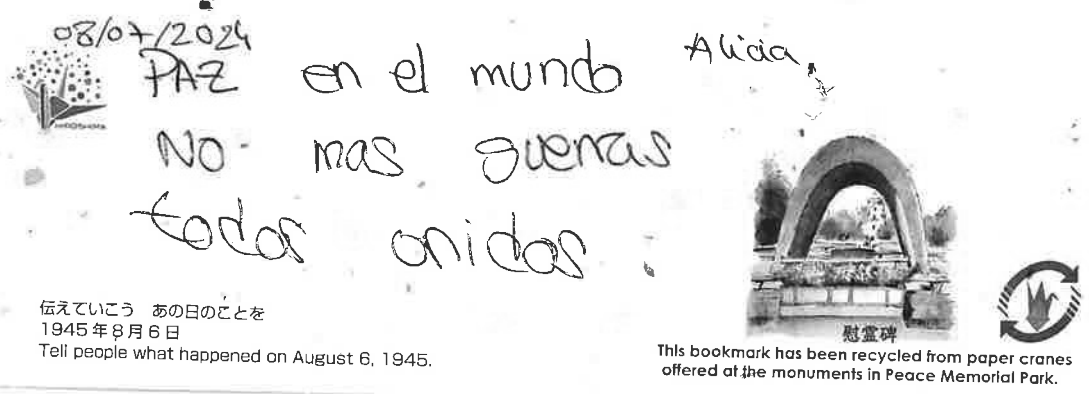 08/07/2024
PAZ en el mundo Alicia
NO mas guerras
todos onidos
HIROSHIMA
伝えていこう あの日のことを
1945年8月6日
Tell people what happened on August 6, 1945.
慰霊碑
This bookmark has been recycled from paper cranes
offered at the monuments in Peace Memorial Park.